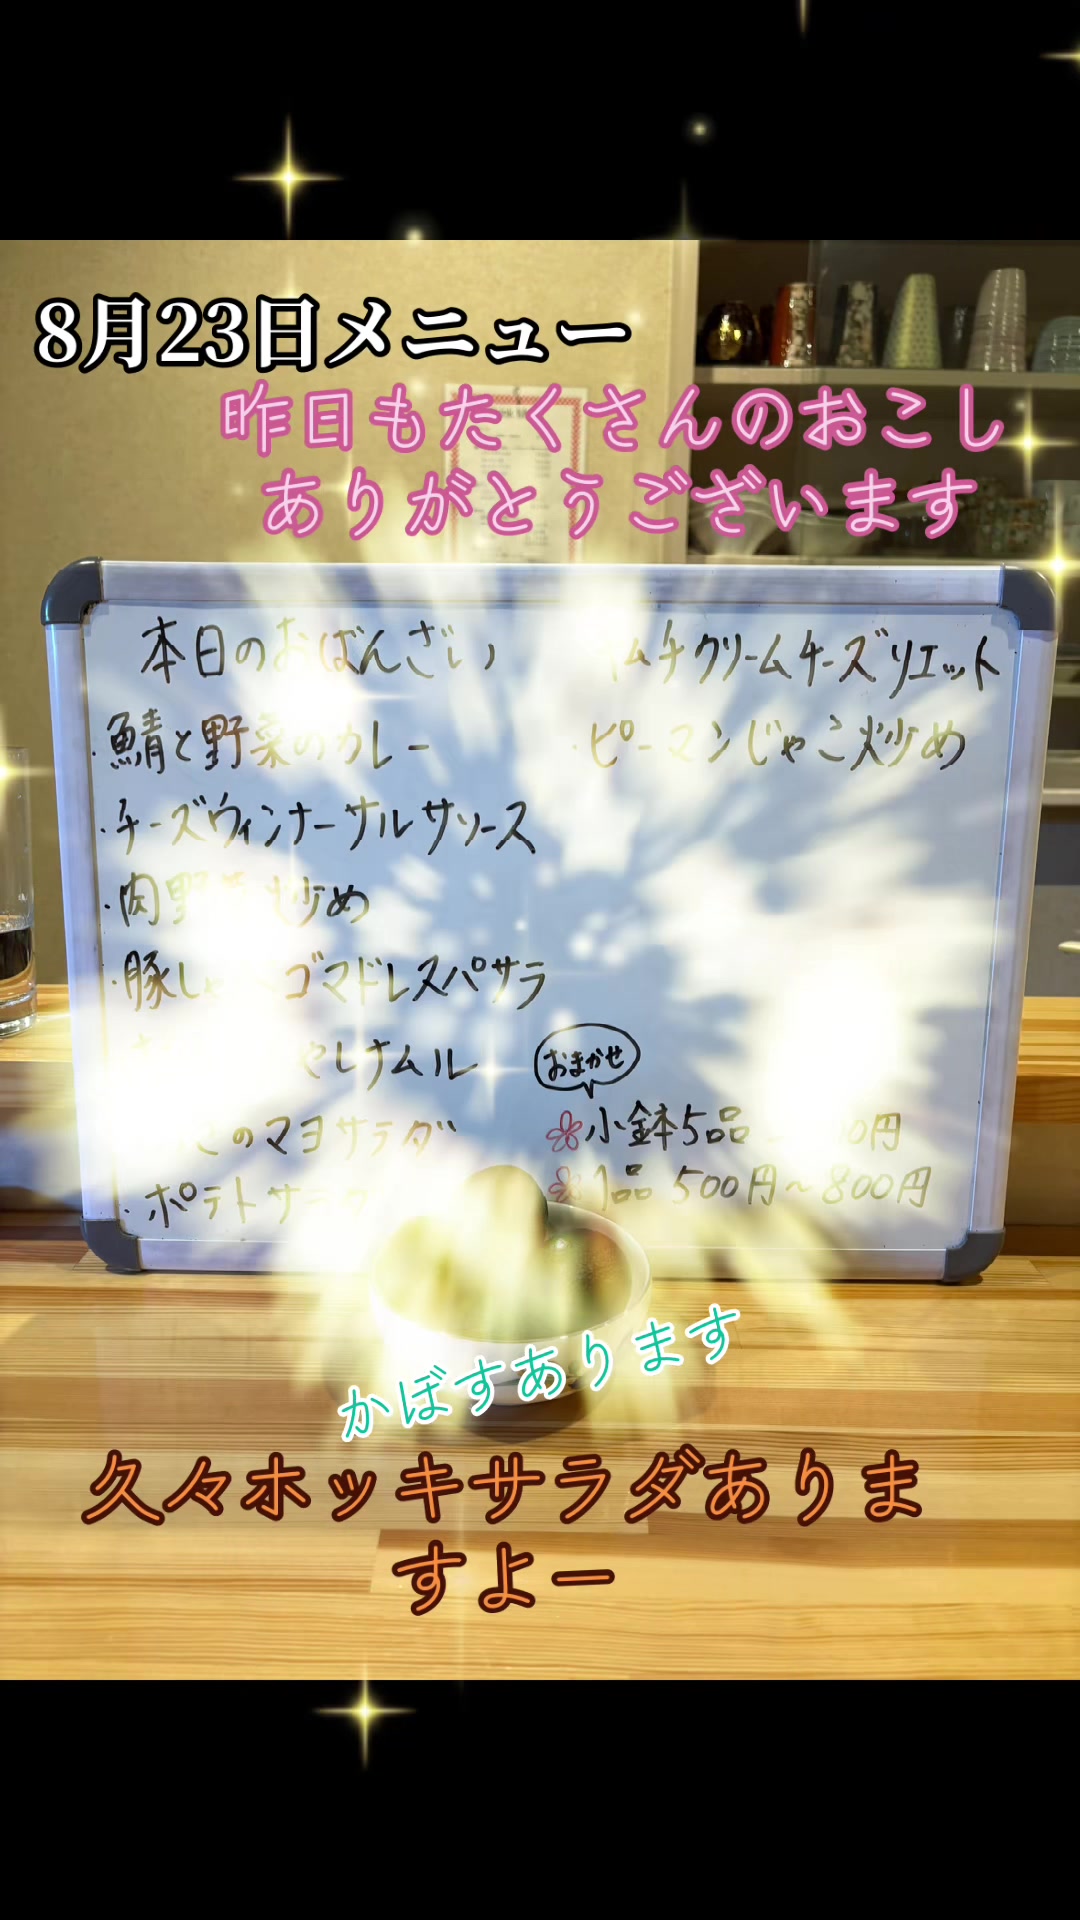 8月23日メニュー
昨日もたくさんのおこし
ありがとうございます
本日のおばんざい
・鯖と野菜のカレー
・チーズウィンナーサルサソース
・肉野菜炒め
・豚しゃぶゴマドレスパサラ
もやしナムル
のマヨサラダ
・ポテトサラダ
キムチクリームチーズリエット
・ピーマンじゃこ炒め
おまかせ
小鉢5品
1品 500円〜800円
かぼすあります
久々ホッキサラダありま
すよー